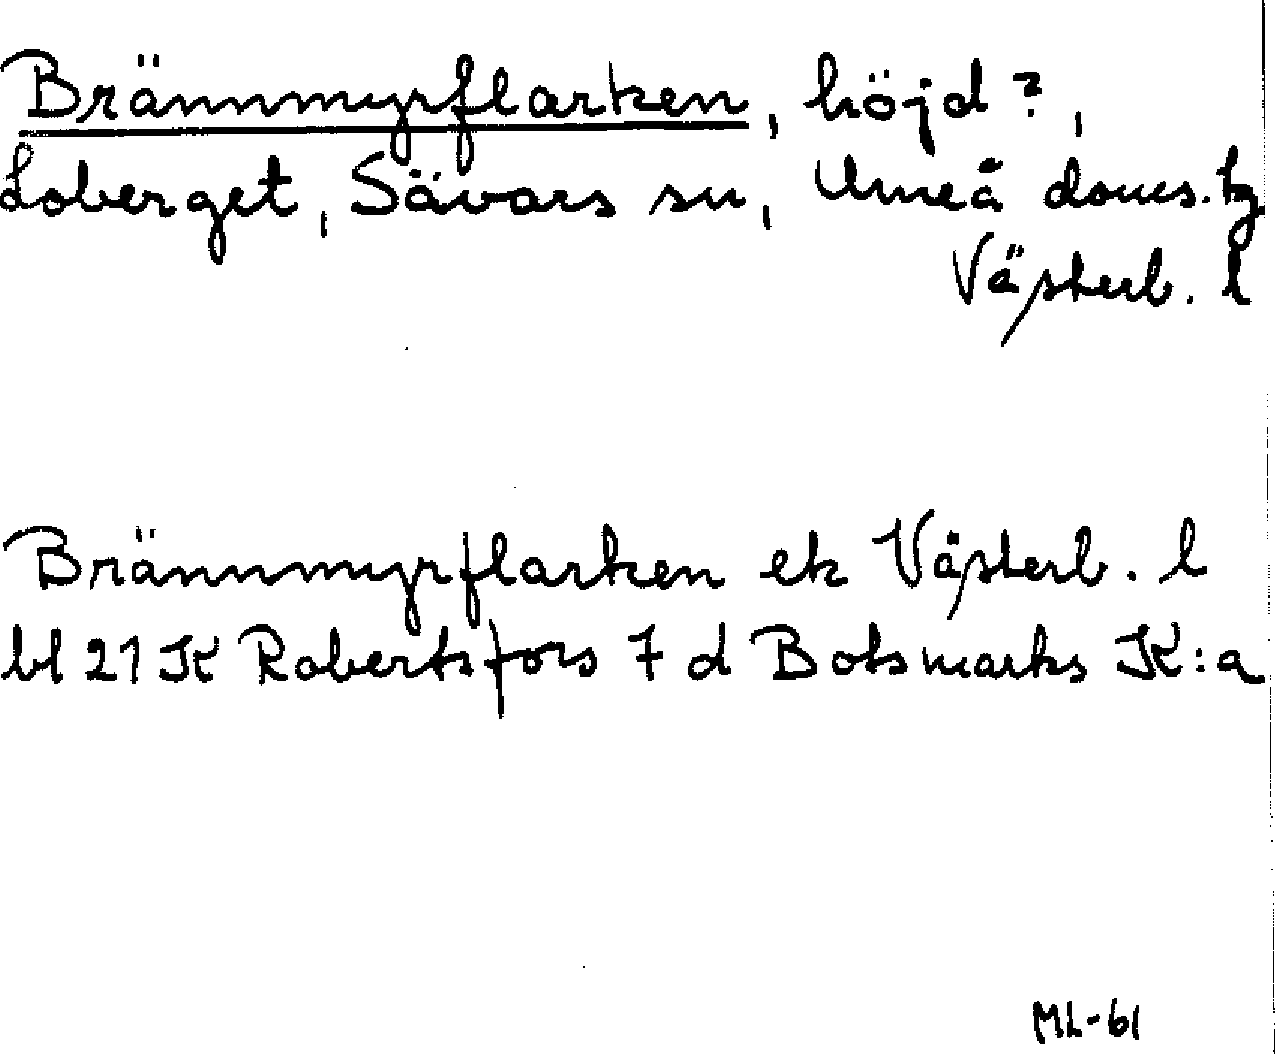 Brännmyrflarken, höjd?,
Loberget, Sävars sn, Umeå doms. tg
Västerb. l
Brännmyrflarken ek Västerb. l
bl 21 K Robertsfors 7 d Botsmarks K:a
ML-61